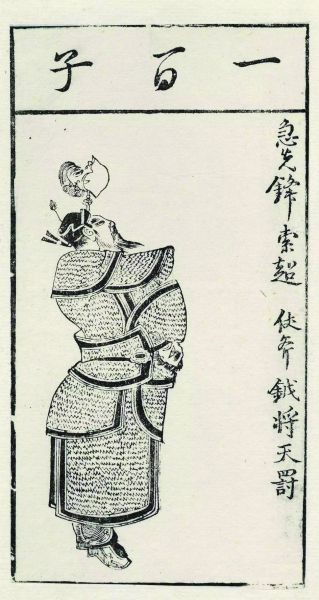 一百子
急先鋒索超 使斧鉞將天罰